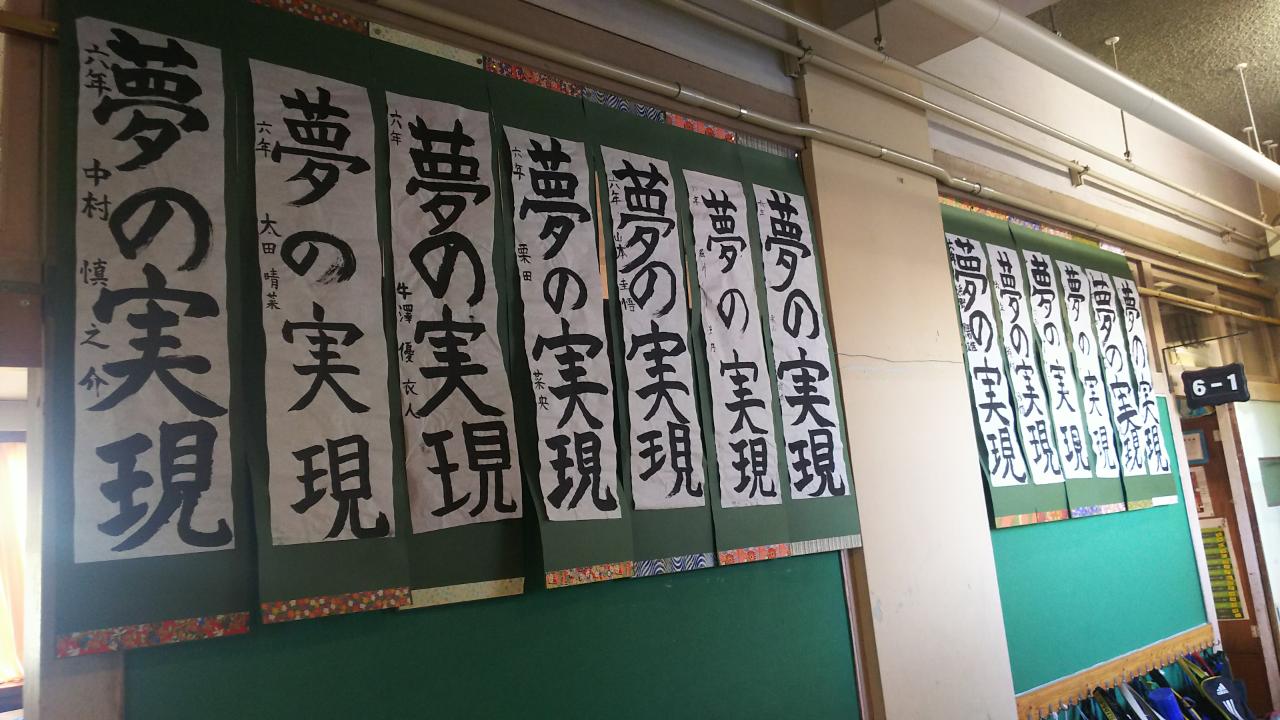 夢の実現
六年 中村 慎之介
夢の実現
六年 太田 晴菜
夢の実現
六年 牛澤 優衣人
夢の実現
六年 栗田 菜央
夢の実現
六年
夢の実現
夢の実現
夢の実現
夢の実現
夢の実現
夢の実現
夢の実現
夢の実現
6-1
adidas